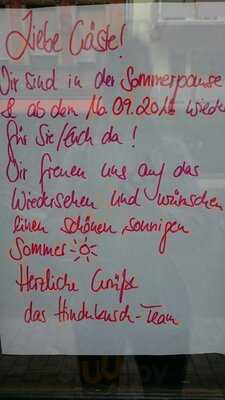 Liebe Gäste!
Wir sind in der Sommerpause
& ab dem 16.09.2016 wieder
für Sie/Euch da!
Wir freuen uns auf das
Wiedersehen und wünschen
einen schönen, sonnigen
Sommer
Herzliche Grüße
das Hindukusch-Team